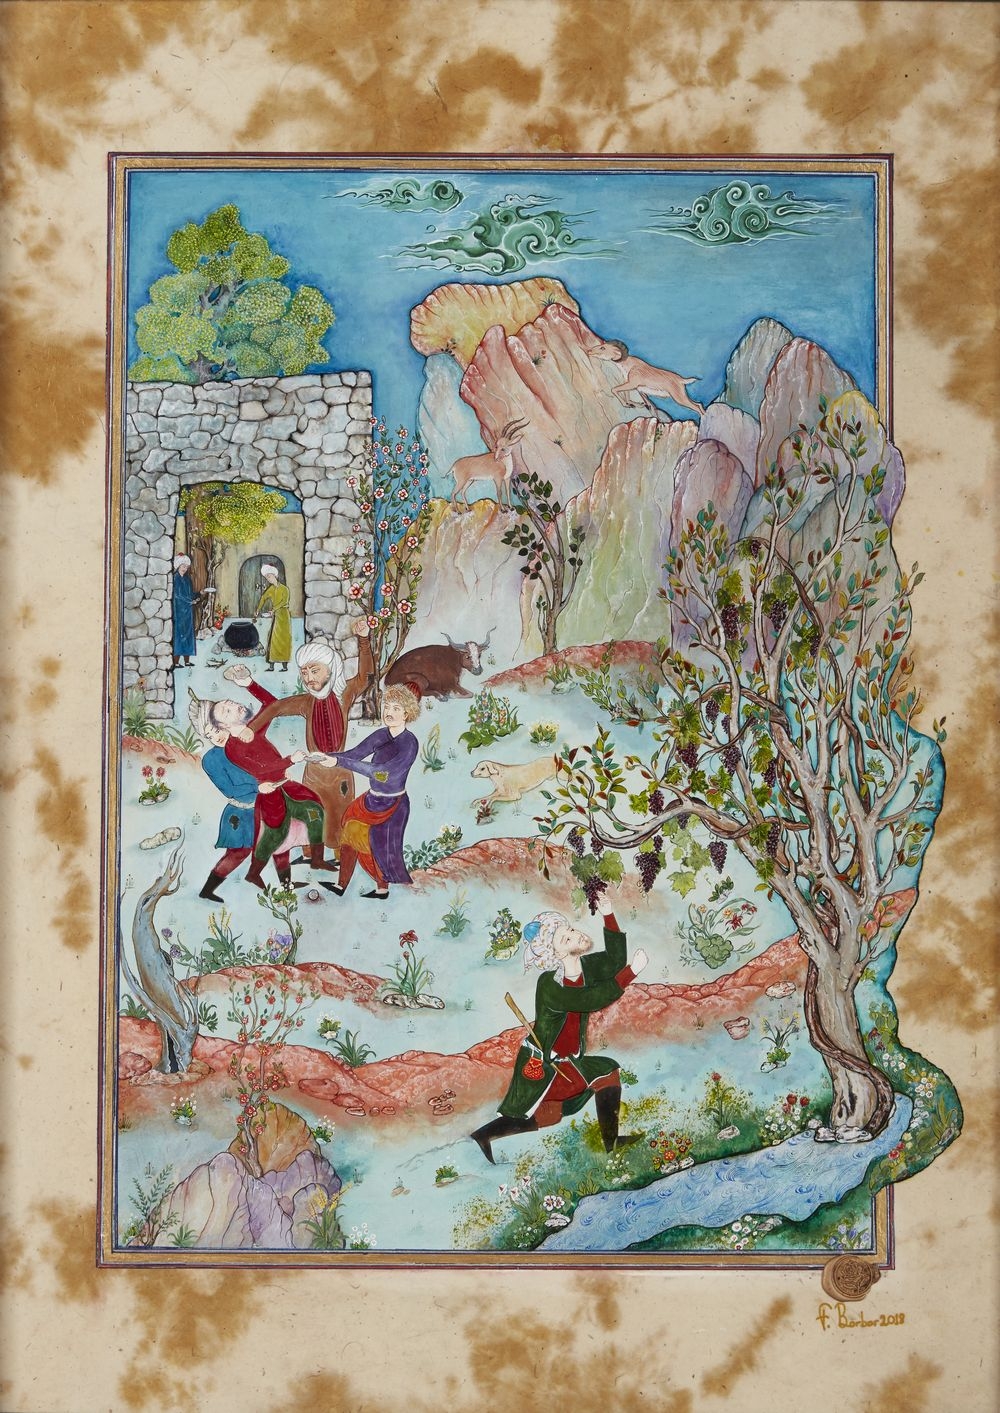 F. Barbar 2018